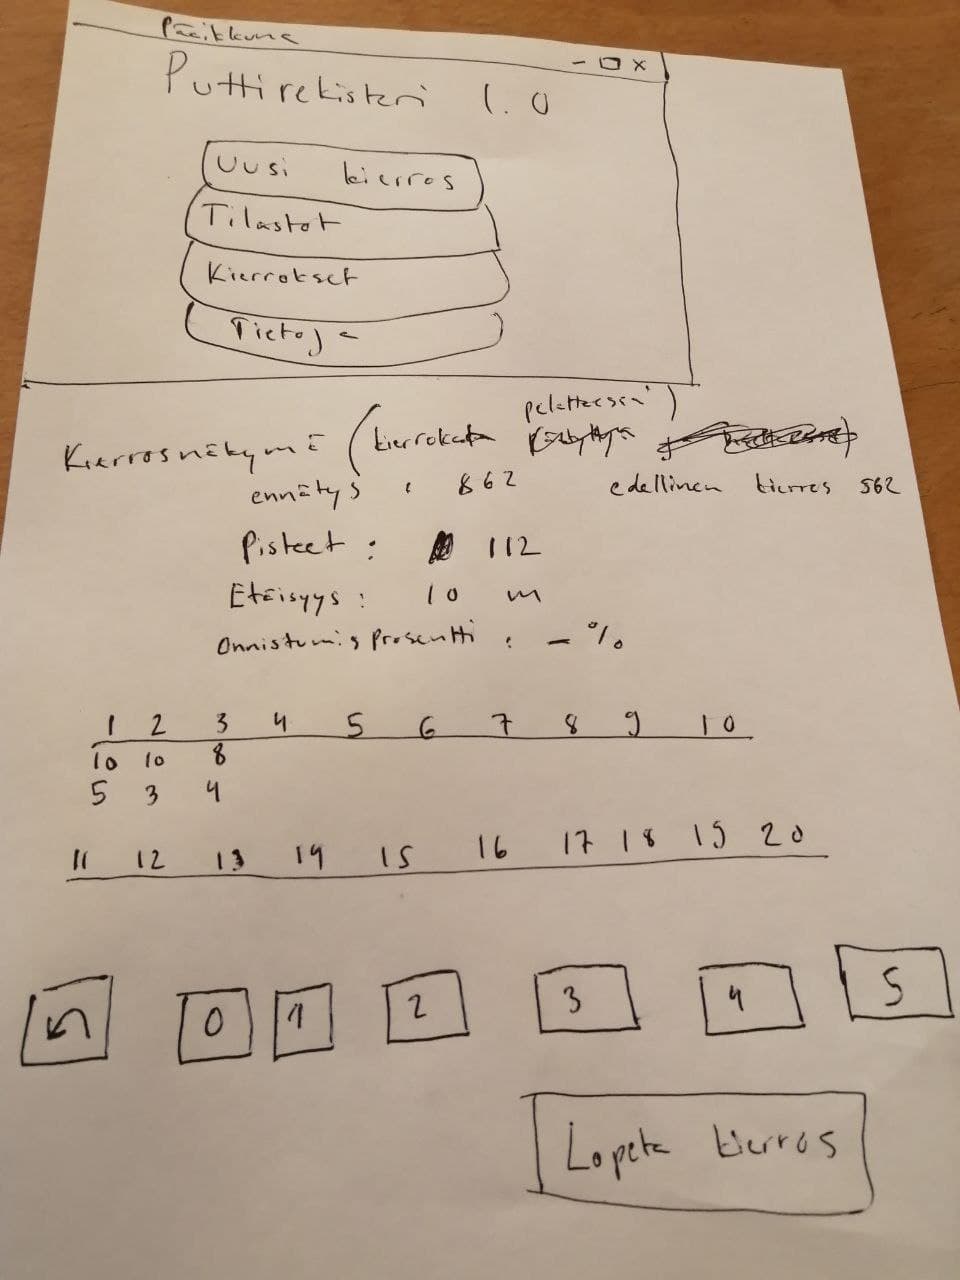 Pääikkuna
- □ x
Puttirekisteri 1.0
Uusi kierros
Tilastot
Kierrokset
Tietoja
Kierrosnäkymä (kierrokata pelattaessa)
ennätys : 862 edellinen kierros 562
Pisteet : 112
Etäisyys : 10 m
Onnistumisprosentti : - %
1 2 3 4 5 6 7 8 9 10
10 10 8
5 3 4
11 12 13 14 15 16 17 18 19 20
0 1 2 3 4 5
Lopeta kierros